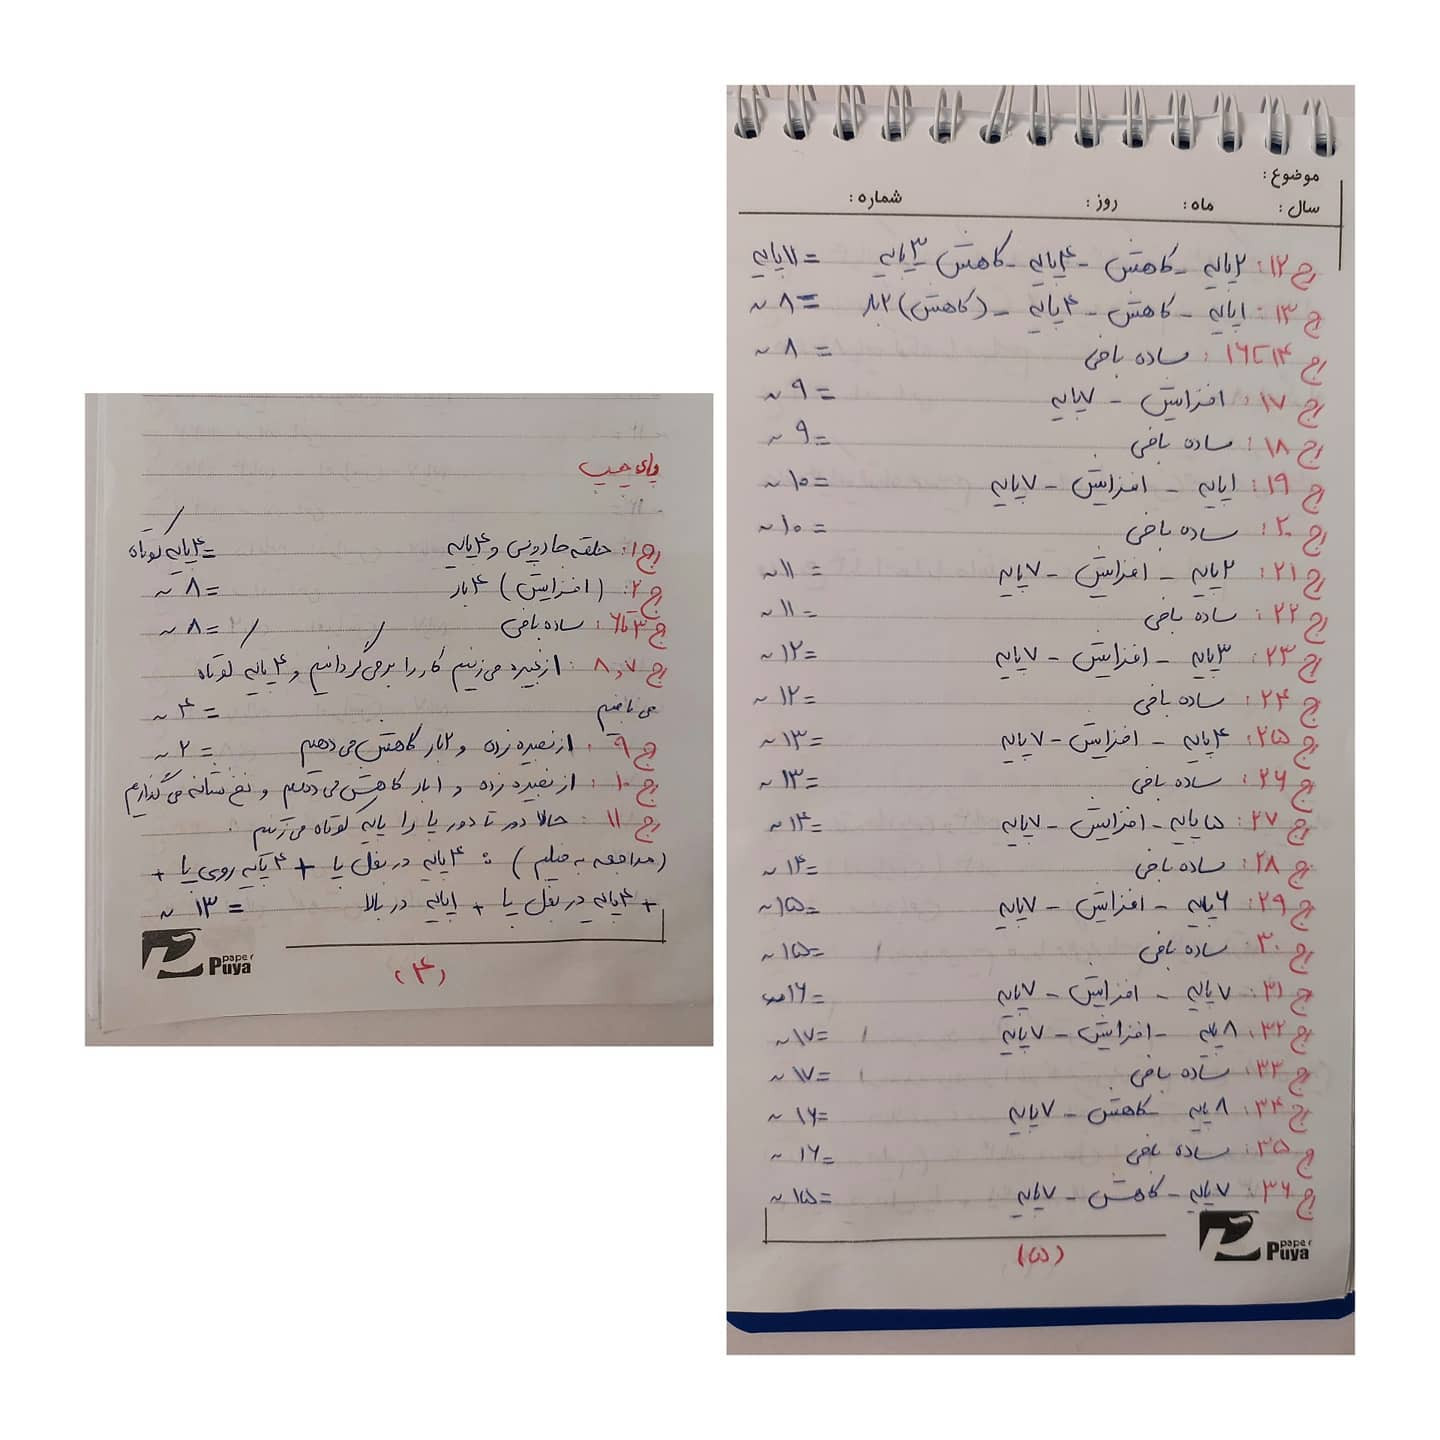 پای چپ
رج ۱: حلقه جادویی و ۴ پایه =۴ پایه کوتاه
رج ۲: (افزایش) ۴ بار =۸ ~
رج ۳ تا ۶: ساده بافی =۸ ~
رج ۷ و ۸: از نمیره می‌زنیم کار را برمی‌گردانیم و ۴ پایه کوتاه
می بافیم =۴ ~
رج ۹: از نمیره زده و ۲ بار کاهش می دهیم =۲ ~
رج ۱۰: از نمیره زده و ۱ بار کاهش می دهیم و نخ نشانه می گذاریم
رج ۱۱: حالا دور تا دور پا را پایه کوتاه می زنیم.
(مراجعه به فیلم): ۴ پایه در بغل پا + ۴ پایه روی پا +
+ ۴ پایه در بغل پا + ۱ پایه در بالا = ۱۳ ~
paper
Puya
(۴)
موضوع:
سال: ماه: روز: شماره:
رج ۱۲: ۲ پایه - کاهش - ۴ پایه - کاهش ۳ پایه =۱۱ پایه
رج ۱۳: ۱ پایه - کاهش - ۴ پایه - (کاهش) ۲ بار =۸ ~
رج ۱۴ تا ۱۶: ساده بافی =۸ ~
رج ۱۷: افزایش - ۷ پایه =۹ ~
رج ۱۸: ساده بافی =۹ ~
رج ۱۹: ۱ پایه - افزایش - ۷ پایه =۱۰ ~
رج ۲۰: ساده بافی =۱۰ ~
رج ۲۱: ۲ پایه - افزایش - ۷ پایه =۱۱ ~
رج ۲۲: ساده بافی =۱۱ ~
رج ۲۳: ۳ پایه - افزایش - ۷ پایه =۱۲ ~
رج ۲۴: ساده بافی =۱۲ ~
رج ۲۵: ۴ پایه - افزایش - ۷ پایه =۱۳ ~
رج ۲۶: ساده بافی =۱۳ ~
رج ۲۷: ۵ پایه - افزایش - ۷ پایه =۱۴ ~
رج ۲۸: ساده بافی =۱۴ ~
رج ۲۹: ۶ پایه - افزایش - ۷ پایه =۱۵ ~
رج ۳۰: ساده بافی =۱۵ ~
رج ۳۱: ۷ پایه - افزایش - ۷ پایه =۱۶ ~
رج ۳۲: ۸ پایه - افزایش - ۷ پایه =۱۷ ~
رج ۳۳: ساده بافی =۱۷ ~
رج ۳۴: ۸ پایه کاهش - ۷ پایه =۱۶ ~
رج ۳۵: ساده بافی =۱۶ ~
رج ۳۶: ۷ پایه - کاهش - ۷ پایه =۱۵ ~
paper
Puya
(۵)